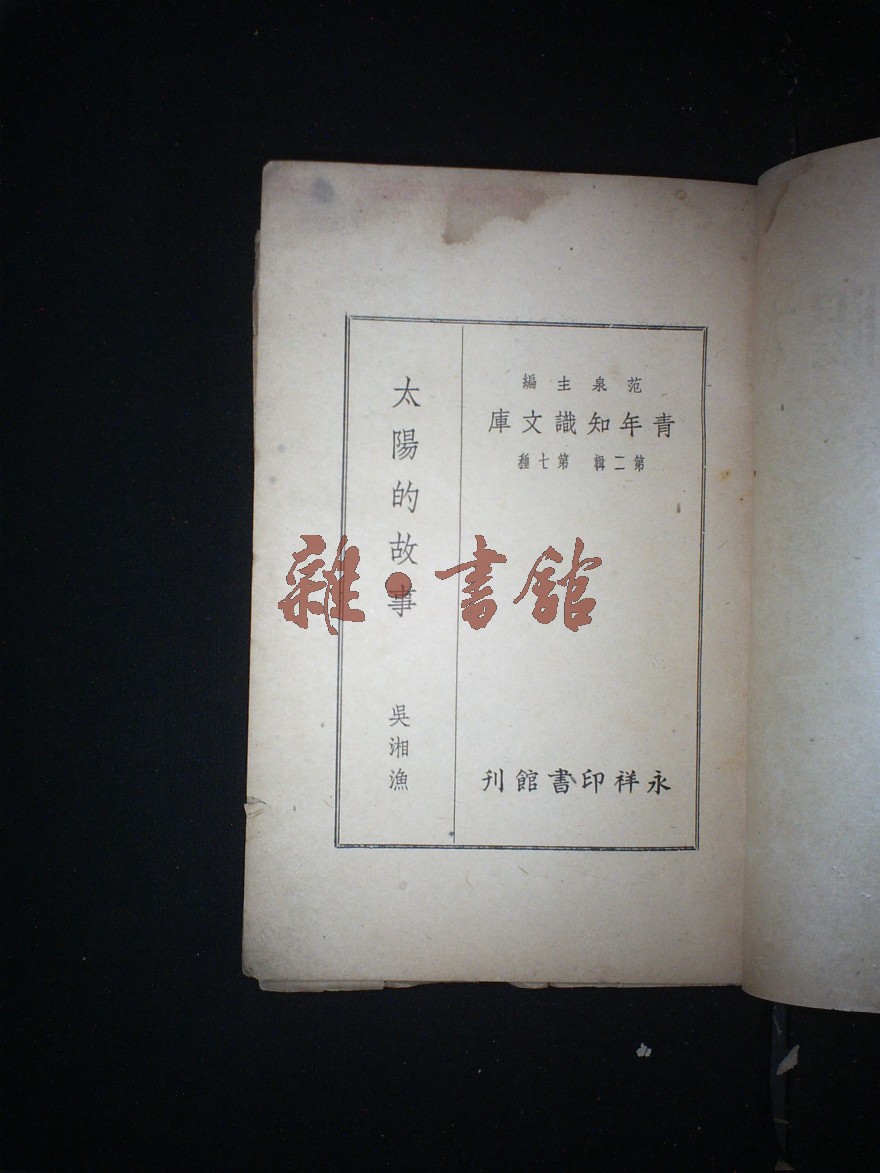 范泉主編
青年知識文庫
第二輯 第七種
永祥印書館刊
太陽的故事
吳湘漁
雜·書館